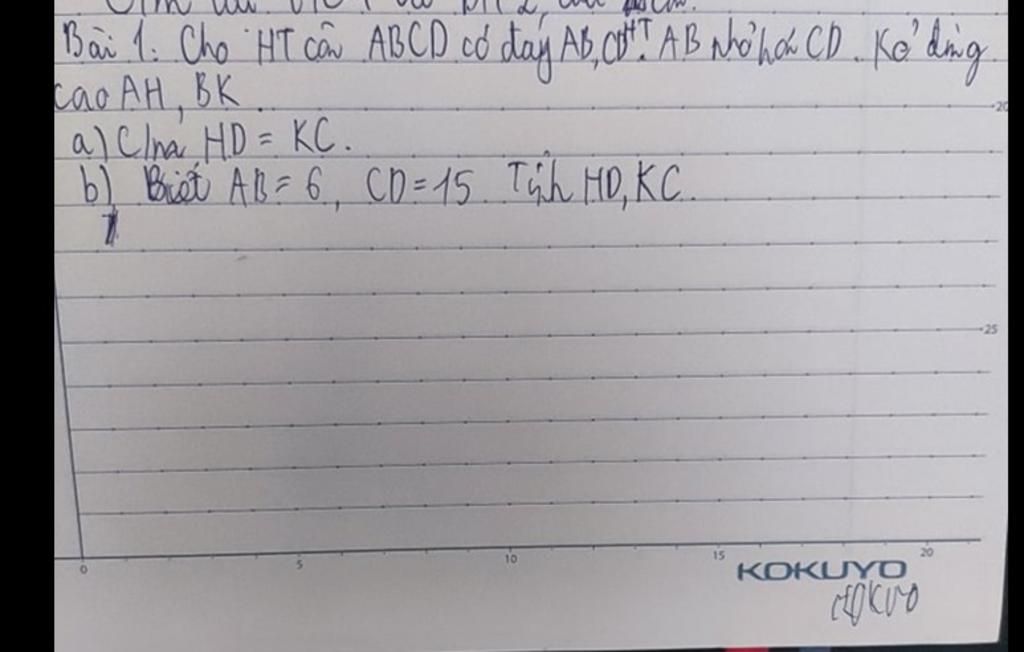 Bài 1: Cho HT cân ABCD có đáy AB, CD HT. AB nhỏ hơn CD. Kẻ đường
cao AH, BK
a) C/m HD = KC.
b) Biết AB = 6, CD = 15 Tính HD, KC.
20
25
0 5 10 15 20
KOKUYO